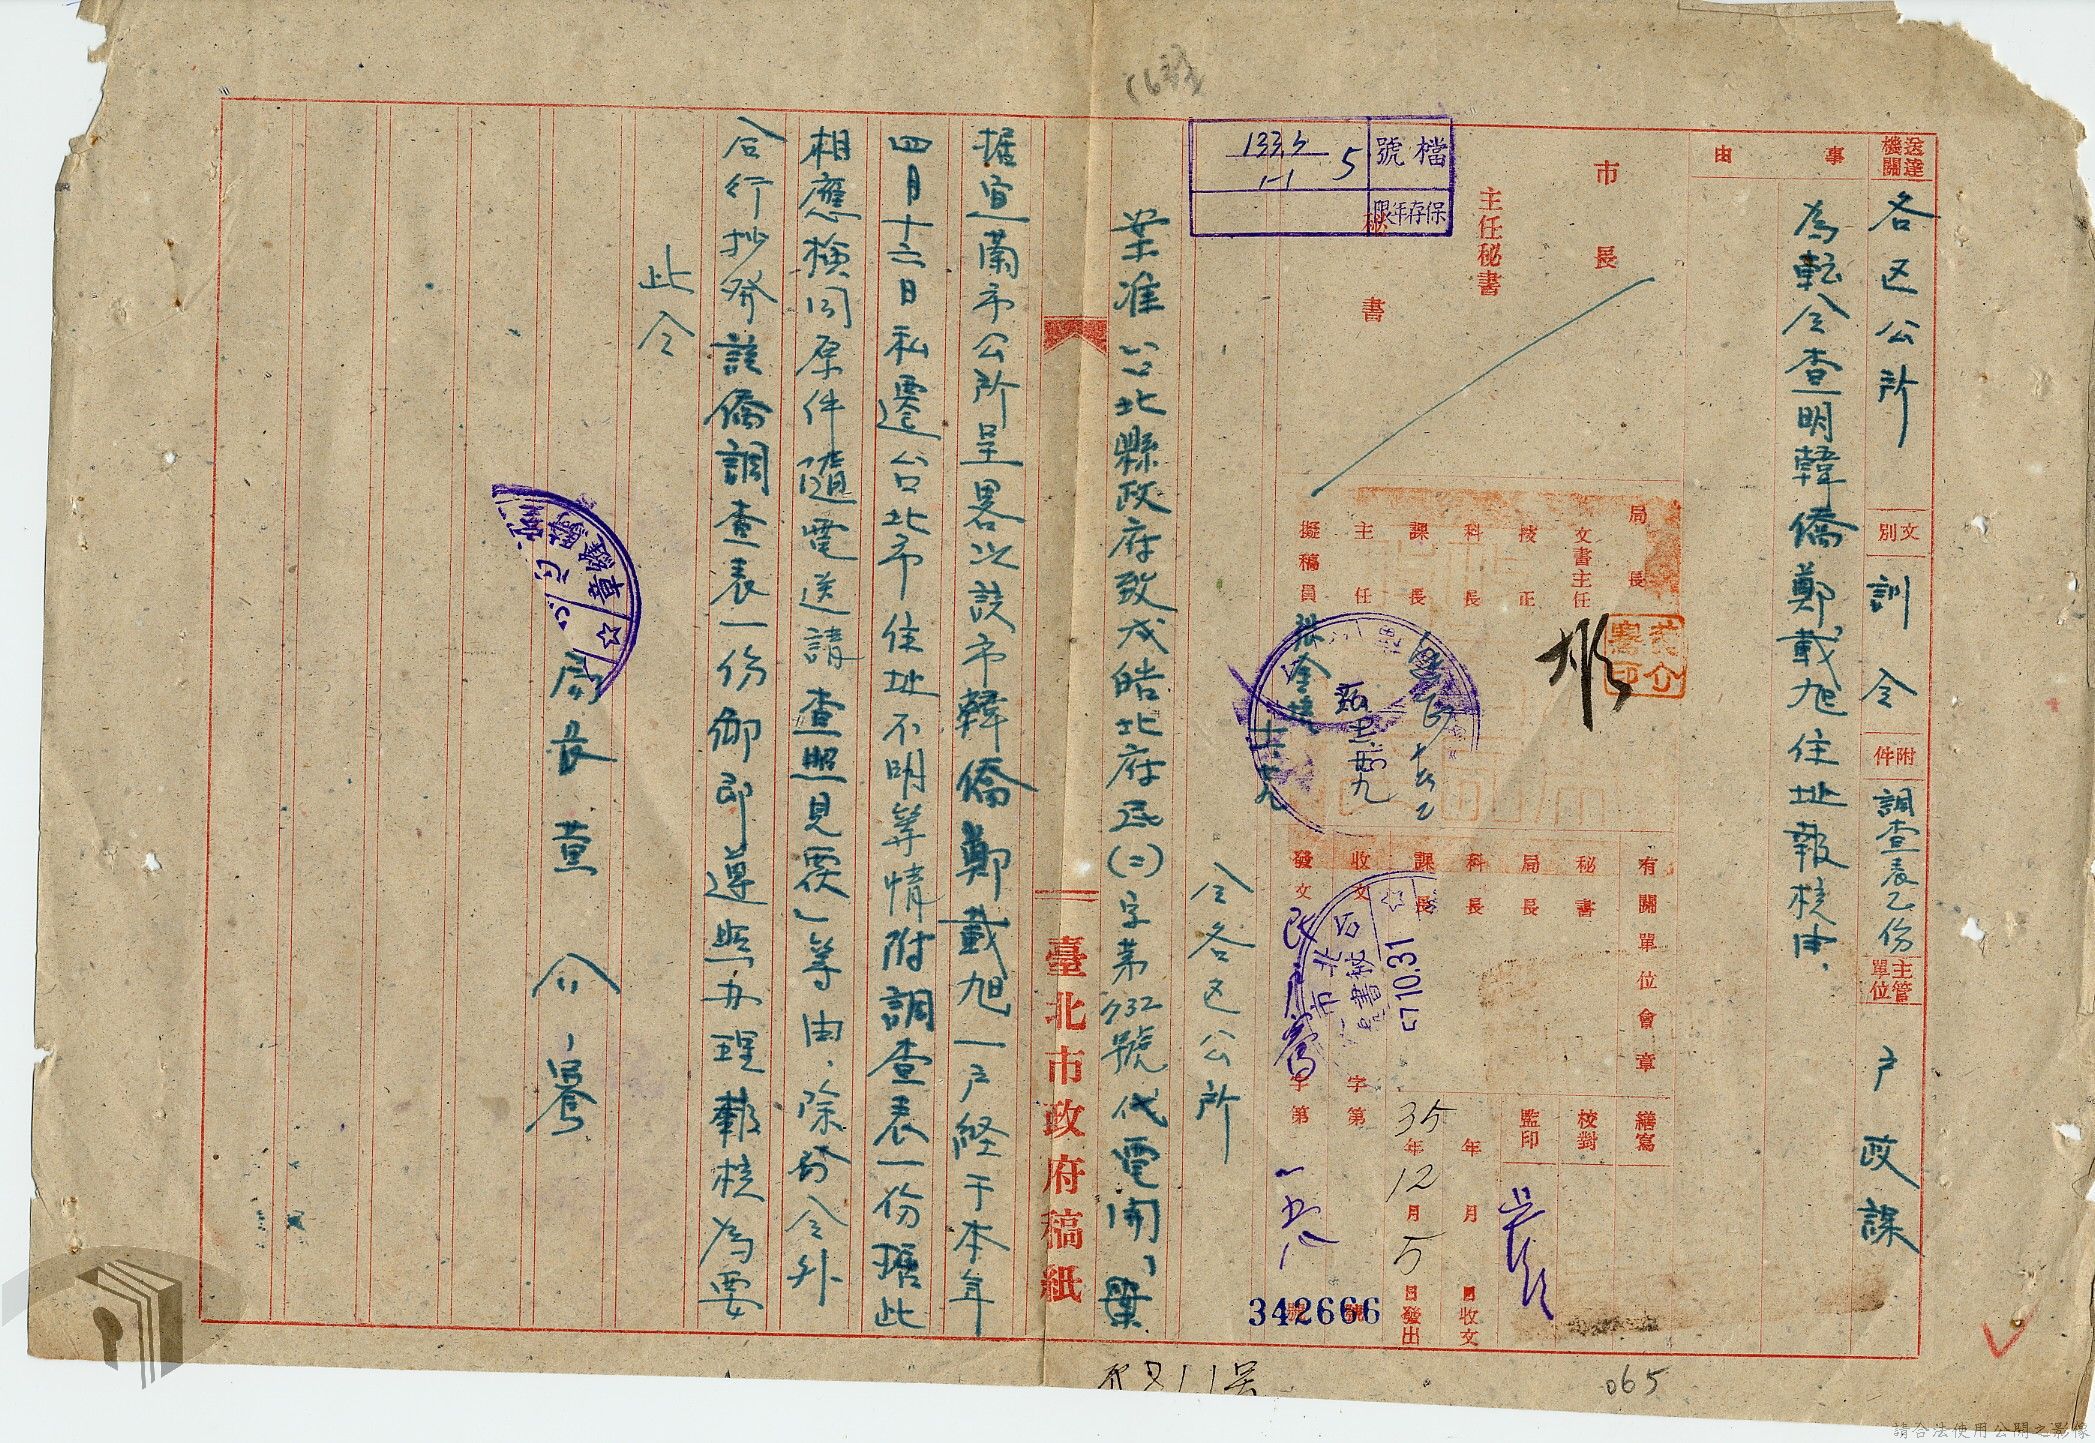 送達機關
各区公所
文別
訓令
附件
調查表乙份
主管單位
户政課
事由
為転令查明韓僑鄭載旭住址報核由
市長
主任秘書
秘書
檔號
133.5 5
1-1
保存年限
局長
文書主任
技正
科長
課長
主任
擬稿員
張金
有關單位會章
秘書
局長
科長
課長
收文 字第 號
發文 字第 號
一五
繕寫
校對
監印
年 月 日收文
35年12月5日發出
342666
10.31
令各区公所
案准台北縣政府致戌皓北府民(二)字第932號代電開、案
据宜蘭市公所呈畧以該市韓僑鄭載旭一户経于本年
四月十二日私遷台北市住址不明等情附調查表一份据此
相應検同原件隨電送請查照見覆」等由、除分令外
合行抄發該僑調查表一份仰即遵照办理報核為要
此令
局長黄介騫
臺北市政府稿紙
065
請合法使用公開之影像